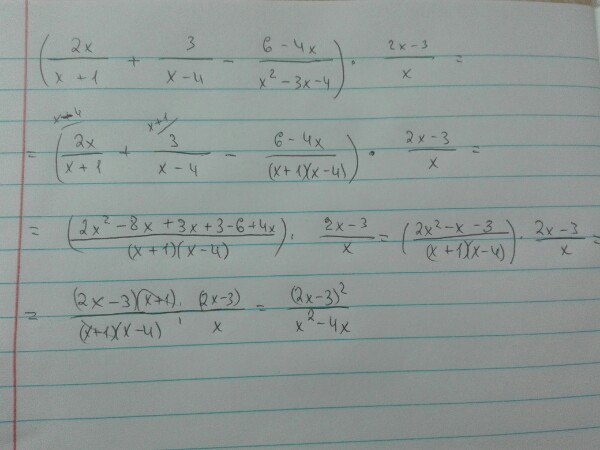 (2x/(x + 1) + 3/(x - 4) - (6 - 4x)/(x² - 3x - 4)) · (2x - 3)/x =
x-4 x+1
= (2x/(x + 1) + 3/(x - 4) - (6 - 4x)/((x + 1)(x - 4))) · (2x - 3)/x =
= ((2x² - 8x + 3x + 3 - 6 + 4x)/((x + 1)(x - 4))) · (2x - 3)/x = ((2x² - x - 3)/((x + 1)(x - 4))) · (2x - 3)/x =
= ((2x - 3)(x + 1))/((x + 1)(x - 4)) · (2x - 3)/x = (2x - 3)²/(x² - 4x)